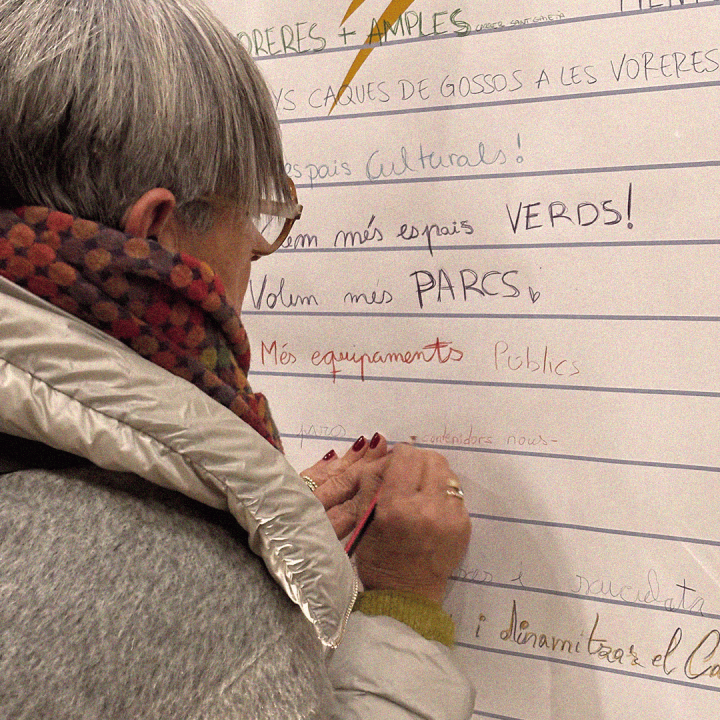 ORERES + AMPLES CARRER SANT
YS CAQUES DE GOSSOS A LES VORERES
espais Culturals!
em més espais VERDS!
Volem mes PARCS
Més equipaments Públics
contenidors nous-
i
i dinamitzar el Ca